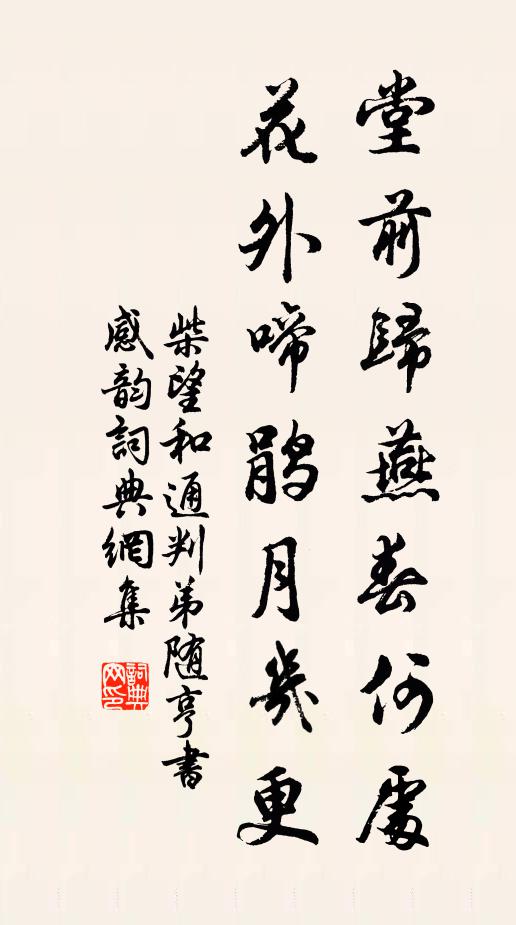 堂前歸燕春何處
花外啼鵑月幾更
柴望和通判弟随亨書
感韵詞典網集
詞典網印